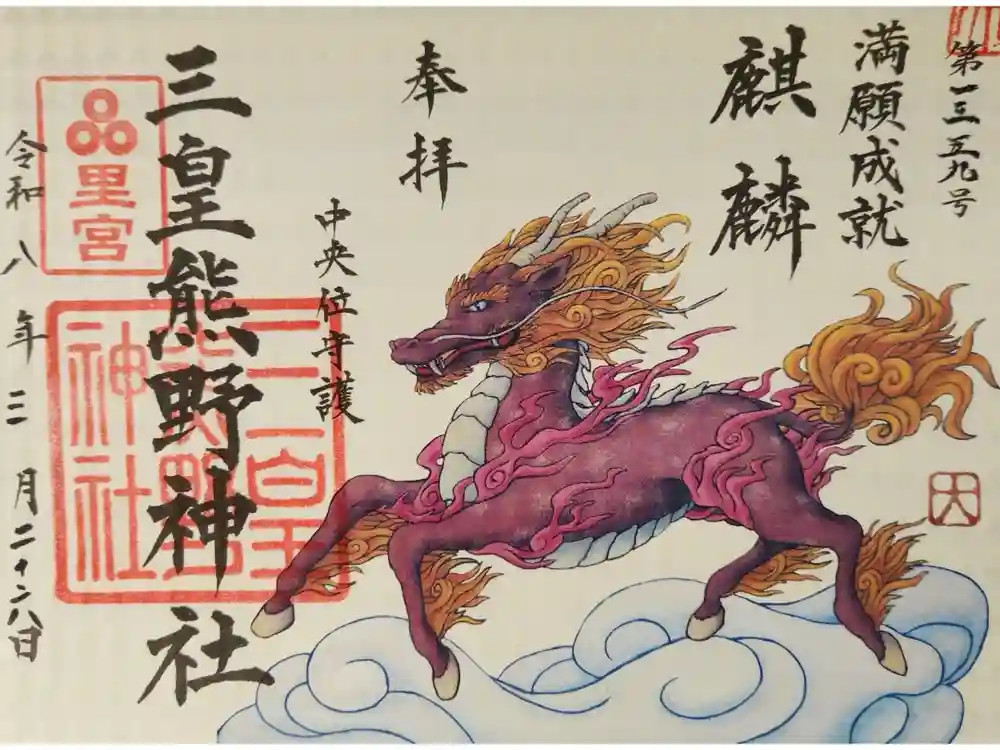 第一三五九号
満願成就
麒麟
奉拝
中央位守護
三皇熊野神社
里宮
三皇
熊野
神社
令和八年三月二十八日